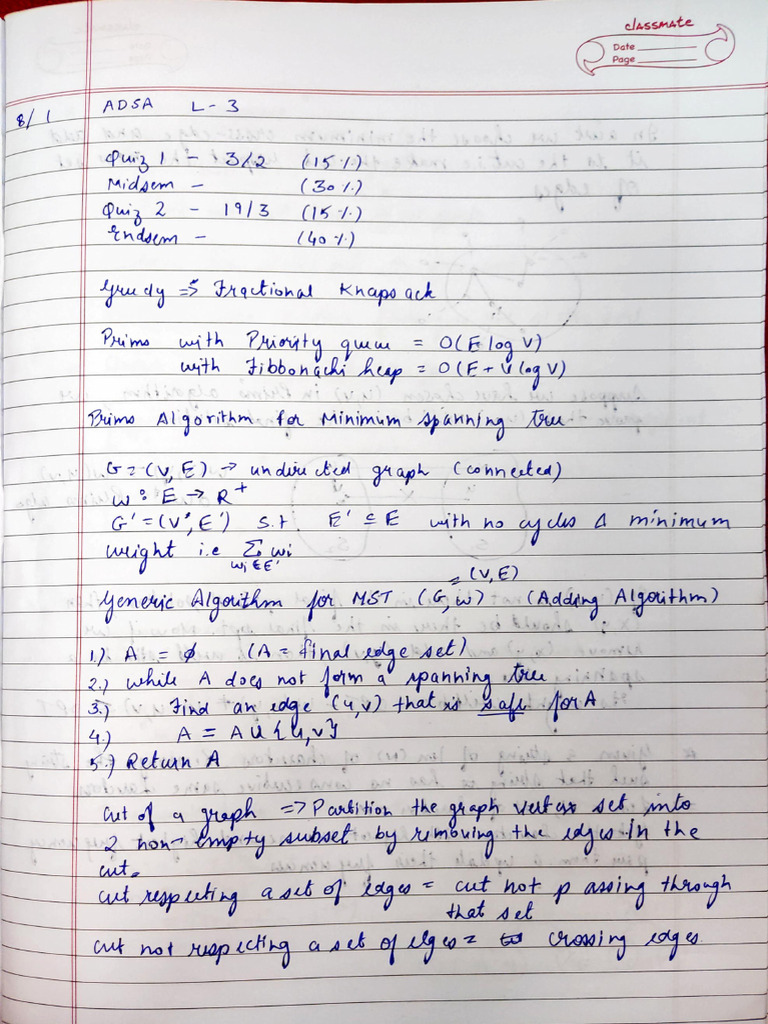 classmate
Date
Page
8/1
ADSA L-3
Quiz 1 - 3/2 (15%)
Midsem - (30%)
Quiz 2 - 19/3 (15%)
Endsem - (40%)
Greedy => Fractional Knapsack
Prims with Priority queue = O(E log V)
with Fibbonachi heap = O(E + V log V)
Prims Algorithm for Minimum spanning tree
G = (V, E) → undirected graph (connected)
w : E → R+
G' = (V', E') s.t E' ⊆ E with no cycles & minimum
weight i.e Σ wi
wi ∈ E'
= (V, E)
Generic Algorithm for MST (G, w) (Adding Algorithm)
1.) A = ϕ (A = final edge set)
2.) while A does not form a spanning tree
3.) Find an edge (u, v) that is safe for A
4.) A = A ∪ {u, v}
5.) Return A
Cut of a graph => Partition the graph vertex set into
2 non-empty subset by removing the edges in the
cut.
cut respecting a set of edges = cut not passing through
that set
cut not respecting a set of elges = crossing edges.